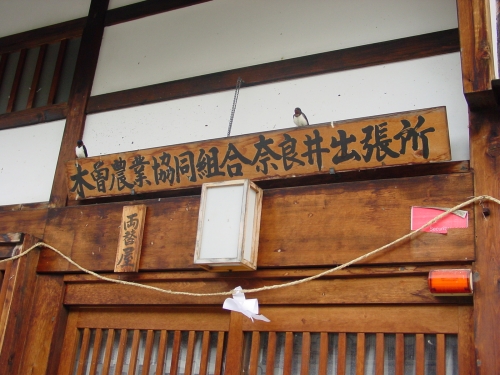 木曽農業協同組合奈良井出張所
両替屋